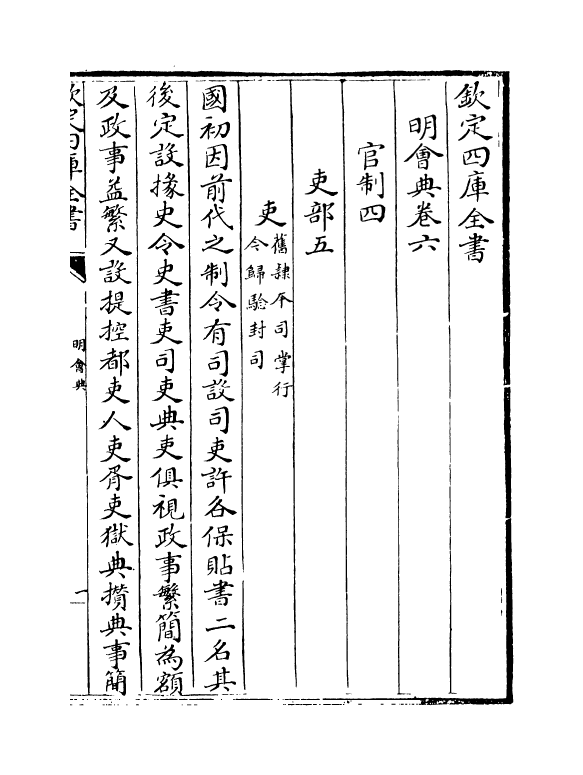 欽定四庫全書
明會典卷六
官制四
吏部五
吏舊隷不司掌行
今歸驗封司
國初因前代之制令有司設司吏許各保貼書二名其
後定設掾史令史書吏司吏典吏俱視政事繁簡為額
及政事益繁又設提控都吏人吏胥吏獄典攢典事簡
欽定四庫全書
明會典
一